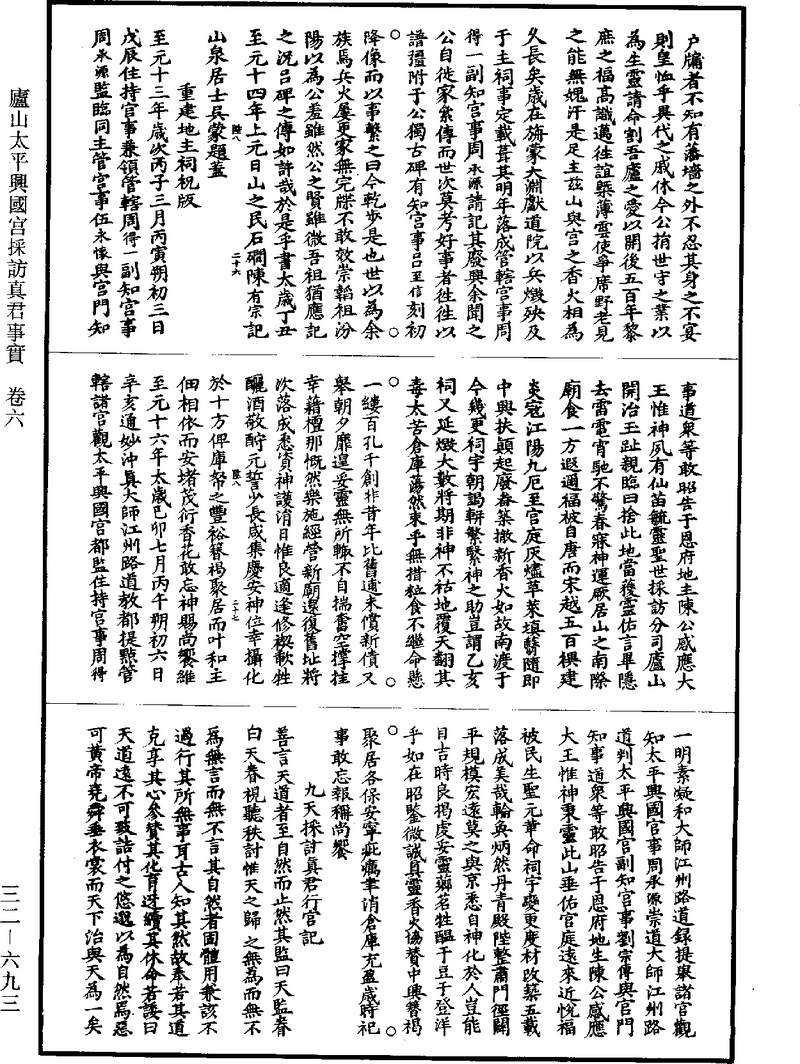 户牖者不知有藩墻之外不忍其身之不宴
則皇恤乎異代之戚休今公捐世守之業以
為生靈請命割吾廬之愛以開後五百年黎
庶之福高識邁往誼槩薄雲使爭席野老見
之能無媿汗是足主茲山與宮之香火相為
久長矣歲在旃蒙大淵獻道院以兵燬殃及
于主祠事定載葺其明年落成管轄宮事周
得一副知宮事周永源請記其廢興余聞之
公自徙家紫傳而世次莫考好事者徃徃以
譜彊附于公獨古碑有知宮事呂至信刻初
降像而以事繫之曰今乾步是也世以為余
族焉兵火屢更家無完牒不敢效崇韜祖汾
陽以為公羞雖然公之賢雖微吾祖猶應記
之况呂碑之傳如許哉於是乎書太歲丁丑
至元十四年上元日山之民石磵陳有宗記
山泉居士吳蒙題蓋
重建地主祠祝版
至元十三年歲次丙子三月丙寅朔初三日
戊辰住持宮事兼領管轄周得一副知宮事
周永源監臨同主管宮事伍永懷與宮門知
事道衆等敢昭告于恩府地主陳公感應大
王惟神夙有仙苗毓靈聖世採訪分司廬山
開冶王趾親臨曰捨此地當獲靈佑言畢隱
去雷電宵馳不驚春寐神運厥居山之南際
廟食一方遐邇福被自唐而宋越五百禩建
炎寇江陽九厄至宮庭灰燼草萊填翳隨即
中興扶顛起廢畚築撤新香火如故南渡于
今幾更祠宇朝謁軿繫繄神之助豈謂乙亥
祠又延燬大數將期非神不祐地覆天翻其
毒太苦倉庫蕩然束手無措粒食不繼命懸
一縷百孔千創非昔年比舊逋未償新債又
舉朝夕靡遑妥靈無所輙不自揣奮空撑拄
幸籍檀那慨然樂施經營新廟還復舊址將
次落成悉資神護消日惟良適逢修禊歃牲
釃酒敬酹元誓少長咸集慶安神位幸攝化
於十方俾庫帑之豐裕簪褐聚居而叶和主
佃相依而安堵茂衍香花敢忘神賜尚饗維
至元十六年太歲己卯七月丙午朔初六日
辛亥通妙沖真大師江州路道教都提點管
轄諸宮觀太平興國宮都監住持宮事周得
一明素凝和大師江州路道錄提舉諸宮觀
知太平興國宮事周永源崇道大師江州路
道判太平興國宮副知宮事劉宗傳與宮門
知事道衆等敢昭告于恩府地主陳公感應
大王惟神秉靈此山垂佑宮庭遠來近悅福
被民生聖元革命祠宇變更度材改築五載
落成美哉輪奐炳然丹青殿陛整肅門徑開
平規模宏遠莫之與京悉自神化於人豈能
日吉時良揭虔妥靈薌茗牲醞于豆于登洋
乎如在昭鑒微誠真靈香火協贊中興簪褐
聚居各保安寧疵癘聿消倉庫充盈歲時祀
事敢忘報稱尚饗
九天採訪真君行宮記
善言天道者至自然而止然其監曰天監眷
曰天眷視聽秩討惟天之歸之無為而無不
為無言而無不言其自然者固體用兼該不
過行其所無事耳古人知其然故奉若其道
克享其心參贊其化育迓續其休命若諉曰
天道遠不可致詰付之悠邈以為自然焉惡
可黃帝堯舜垂衣裳而天下治與天為一矣
廬山太平興國宮採訪真君事實 卷六
三二—六九三
陸八
二十六
陸八
二十七